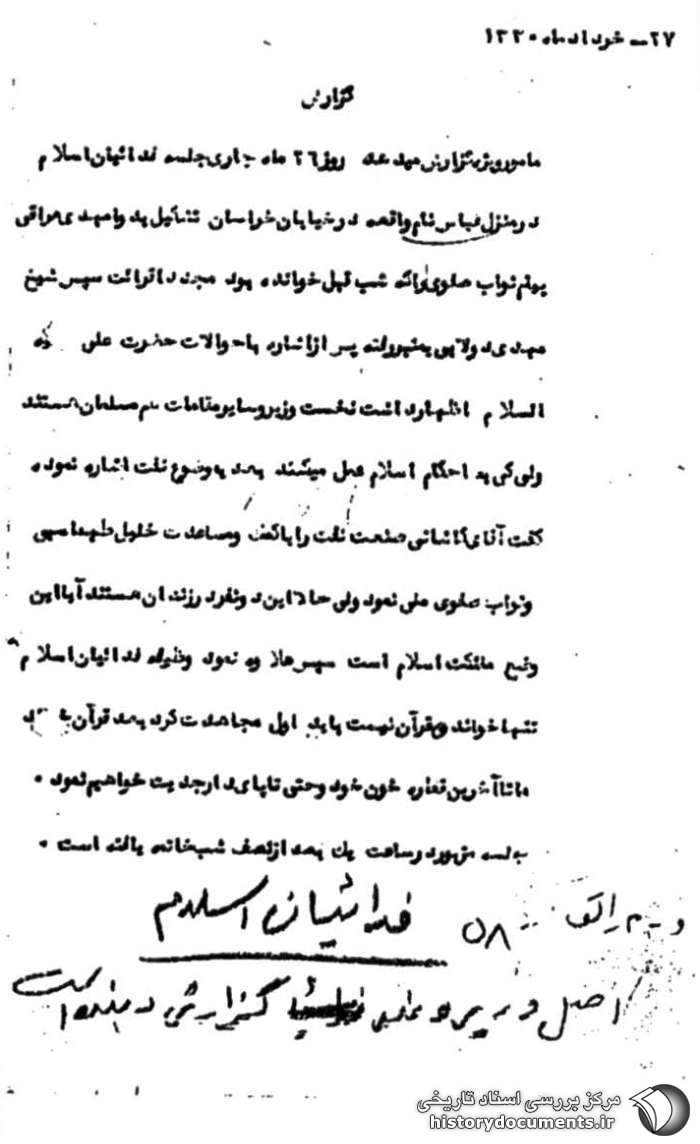 ۲۷ــ خرداد ماه ۱۳۳۰
گزارش
مامور ویژه گزارش میدهد روز ۲٦ ماه جاری جلسه فدائیان اسلام
در منزل عباس نام واقعه در خیابان خراسان تشکیل شد و امیدی عراقی
پیام نواب صفوی را که شب قبل خوانده بود مجددا قرائت سپس شیخ
مهدی دولابی بمنبر رفته پس از اشاره بحالات حضرت علی
السلام اظهار داشت نخست وزیر و سایر مقامات هم مسلمان هستند
ولی کی به احکام اسلام عمل میکنند بعد بموضوع نفت اشاره نموده
گفت آقای کاشانی صنعت نفت را با کمک و مساعدت خلیل طهماسبی
و نواب صفوی ملی نمود ولی حالا این دو نفر در زندان هستند آیا این
وضع مملکت اسلام است سپس علاوه نمود وظیفه فدائیان اسلام
تنها خواندن قرآن نیست باید اول مجاهدت کرد بعد قرآن
ما تا آخرین قطره خون خود و حتی تا پای دار جدیت خواهیم نمود ۰
جلسه مزبور در ساعت یك بعد از نصف شب خاتمه یافته است ۰
فدائیان اسلام
۵۸
اصل در پرونده گزارش
مرکز بررسی اسناد تاریخی
historydocuments.ir